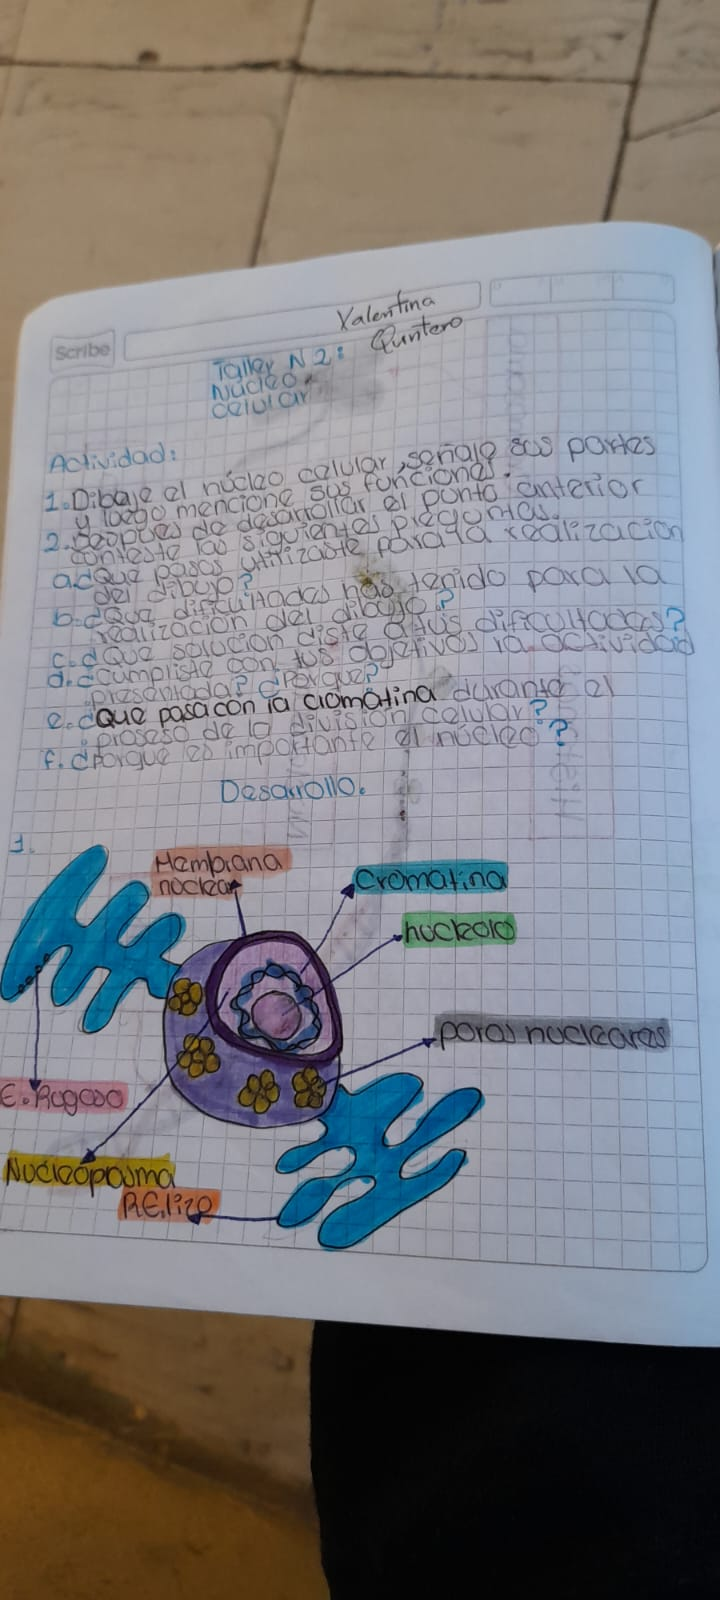 Valentina
Quntero
Scribe
Taller N 2:
Núcleo
celular
Actividad:
1. Dibuje el núcleo celular, señale sus partes
y luego mencione sus funciones.
2. Despues de desarrollar el punto anterior
conteste las siguientes preguntas.
a. ¿Que pasos utilizaste para la realizacion
del dibujo?
b. ¿Que dificultades has tenido para la
realización del dibujo?
c. ¿Que solucion diste a tus dificultades?
d. ¿cumpliste con tus objetivos la actividad
presentada? ¿Porque?
e. ¿Que pasa con la cromatina durante el
proseso de la división celular?
f. ¿Porque es importante el núcleo?
Desarrollo.
1.
Membrana
nuclear
Cromatina
nucleolo
poros nucleares
E. Rugoso
Nucleoplasma
R.E. lizo